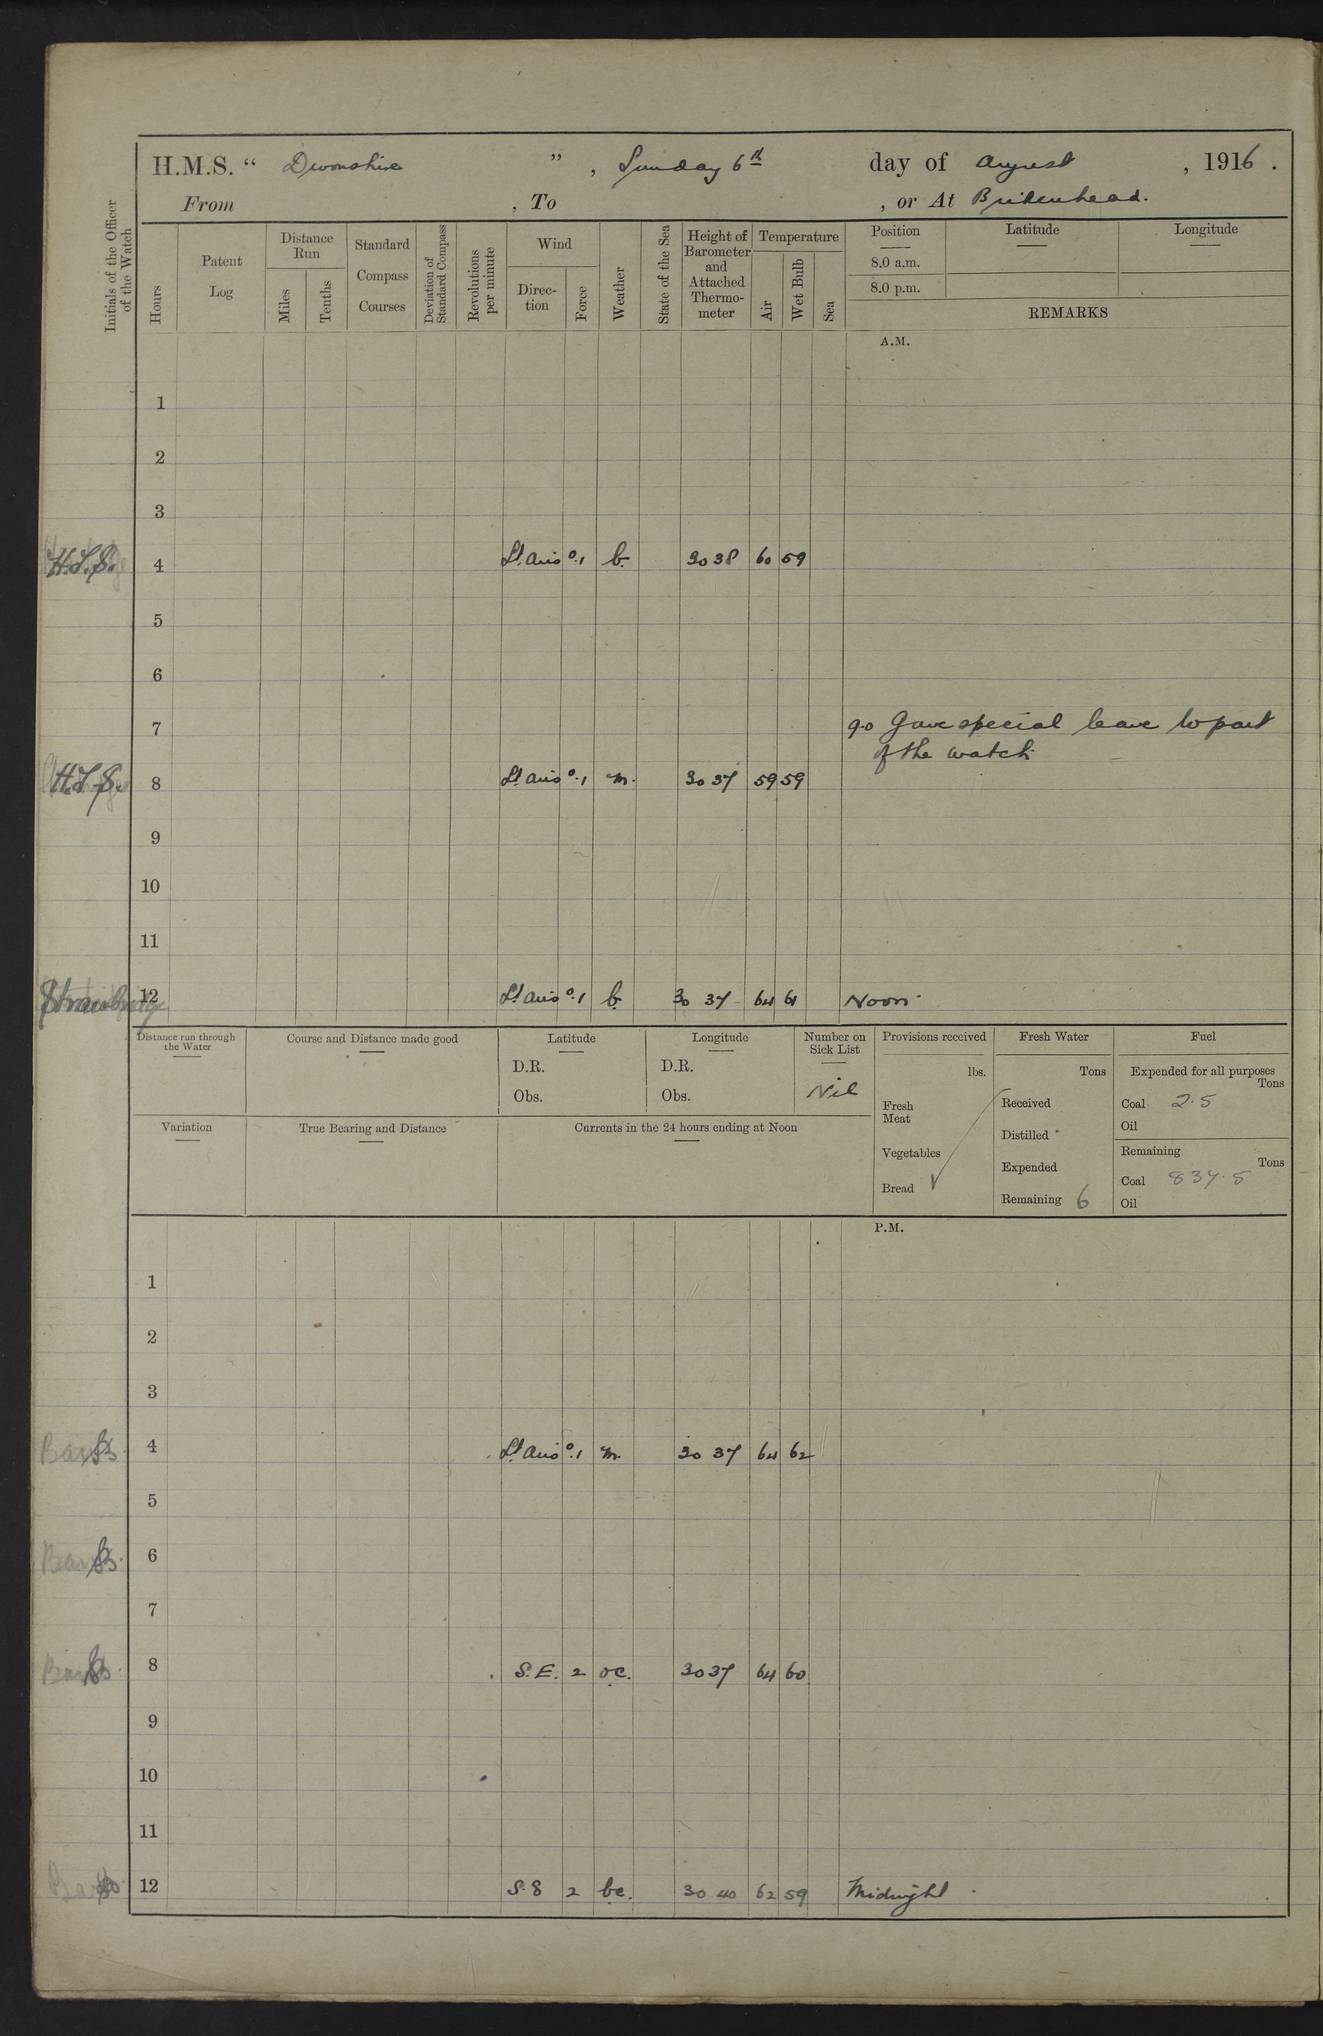 H.M.S. “ Devonshire ” , Sunday 6th day of August , 1916 .
From , To , or At Birkenhead.
Initials of the Officer of the Watch
Hours
Patent Log
Distance Run
Miles
Tenths
Standard Compass Courses
Deviation of Standard Compass
Revolutions per minute
Wind
Direc-tion
Force
Weather
State of the Sea
Height of Barometer and Attached Thermo-meter
Temperature
Air
Wet Bulb
Sea
Position
8.0 a.m.
8.0 p.m.
Latitude
Longitude
REMARKS
A.M.
1
2
3
H.L.S. 4 Lt airs 0.1 b. 30 38 60 59
5
6
7 9.0 Gave special leave to part
of the watch
H.L.S. 8 Lt airs 0.1 m. 30 37 59 59
9
10
11
12 Lt airs 0.1 b. 30 37 64 61 Noon.
Distance run through the Water
Course and Distance made good
Latitude
D.R.
Obs.
Longitude
D.R.
Obs.
Number on Sick List
Nil
Provisions received
lbs.
Fresh Meat
Vegetables
Bread
Fresh Water
Tons
Received
Distilled
Expended
Remaining 6
Fuel
Expended for all purposes
Tons
Coal 2.5
Oil
Remaining
Tons
Coal 837.5
Oil
Variation
True Bearing and Distance
Currents in the 24 hours ending at Noon
P.M.
1
2
3
4 Lt airs 0.1 m. 30 37 64 62
5
6
7
8 S.E. 2 oc. 30 37 64 60
9
10
11
12 S.E 2 bc. 30 40 62 59 Midnight